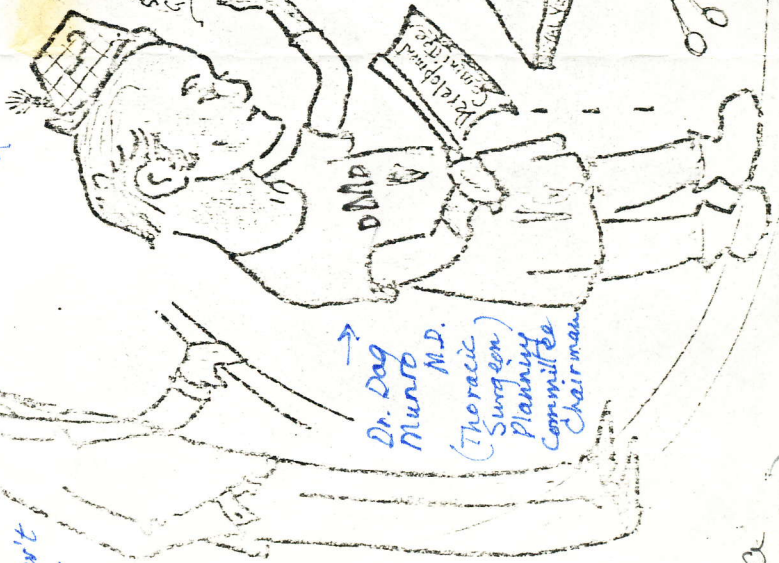 Development
Committee
DMD
Dr. Dag
Munro
M.D.
(Thoracic
Surgeon)
Planning
Committee
Chairman